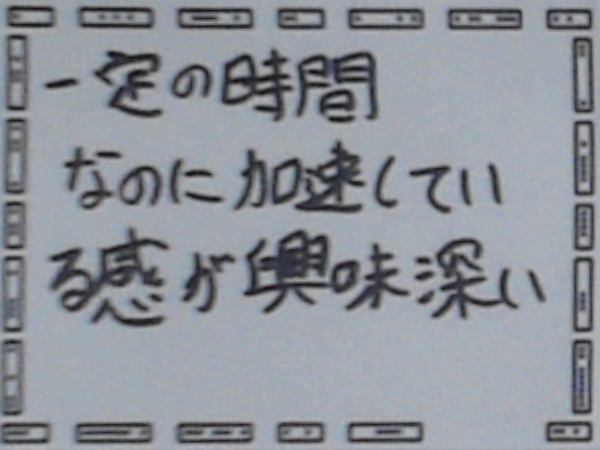 一定の時間
なのに加速してい
る感が興味深い